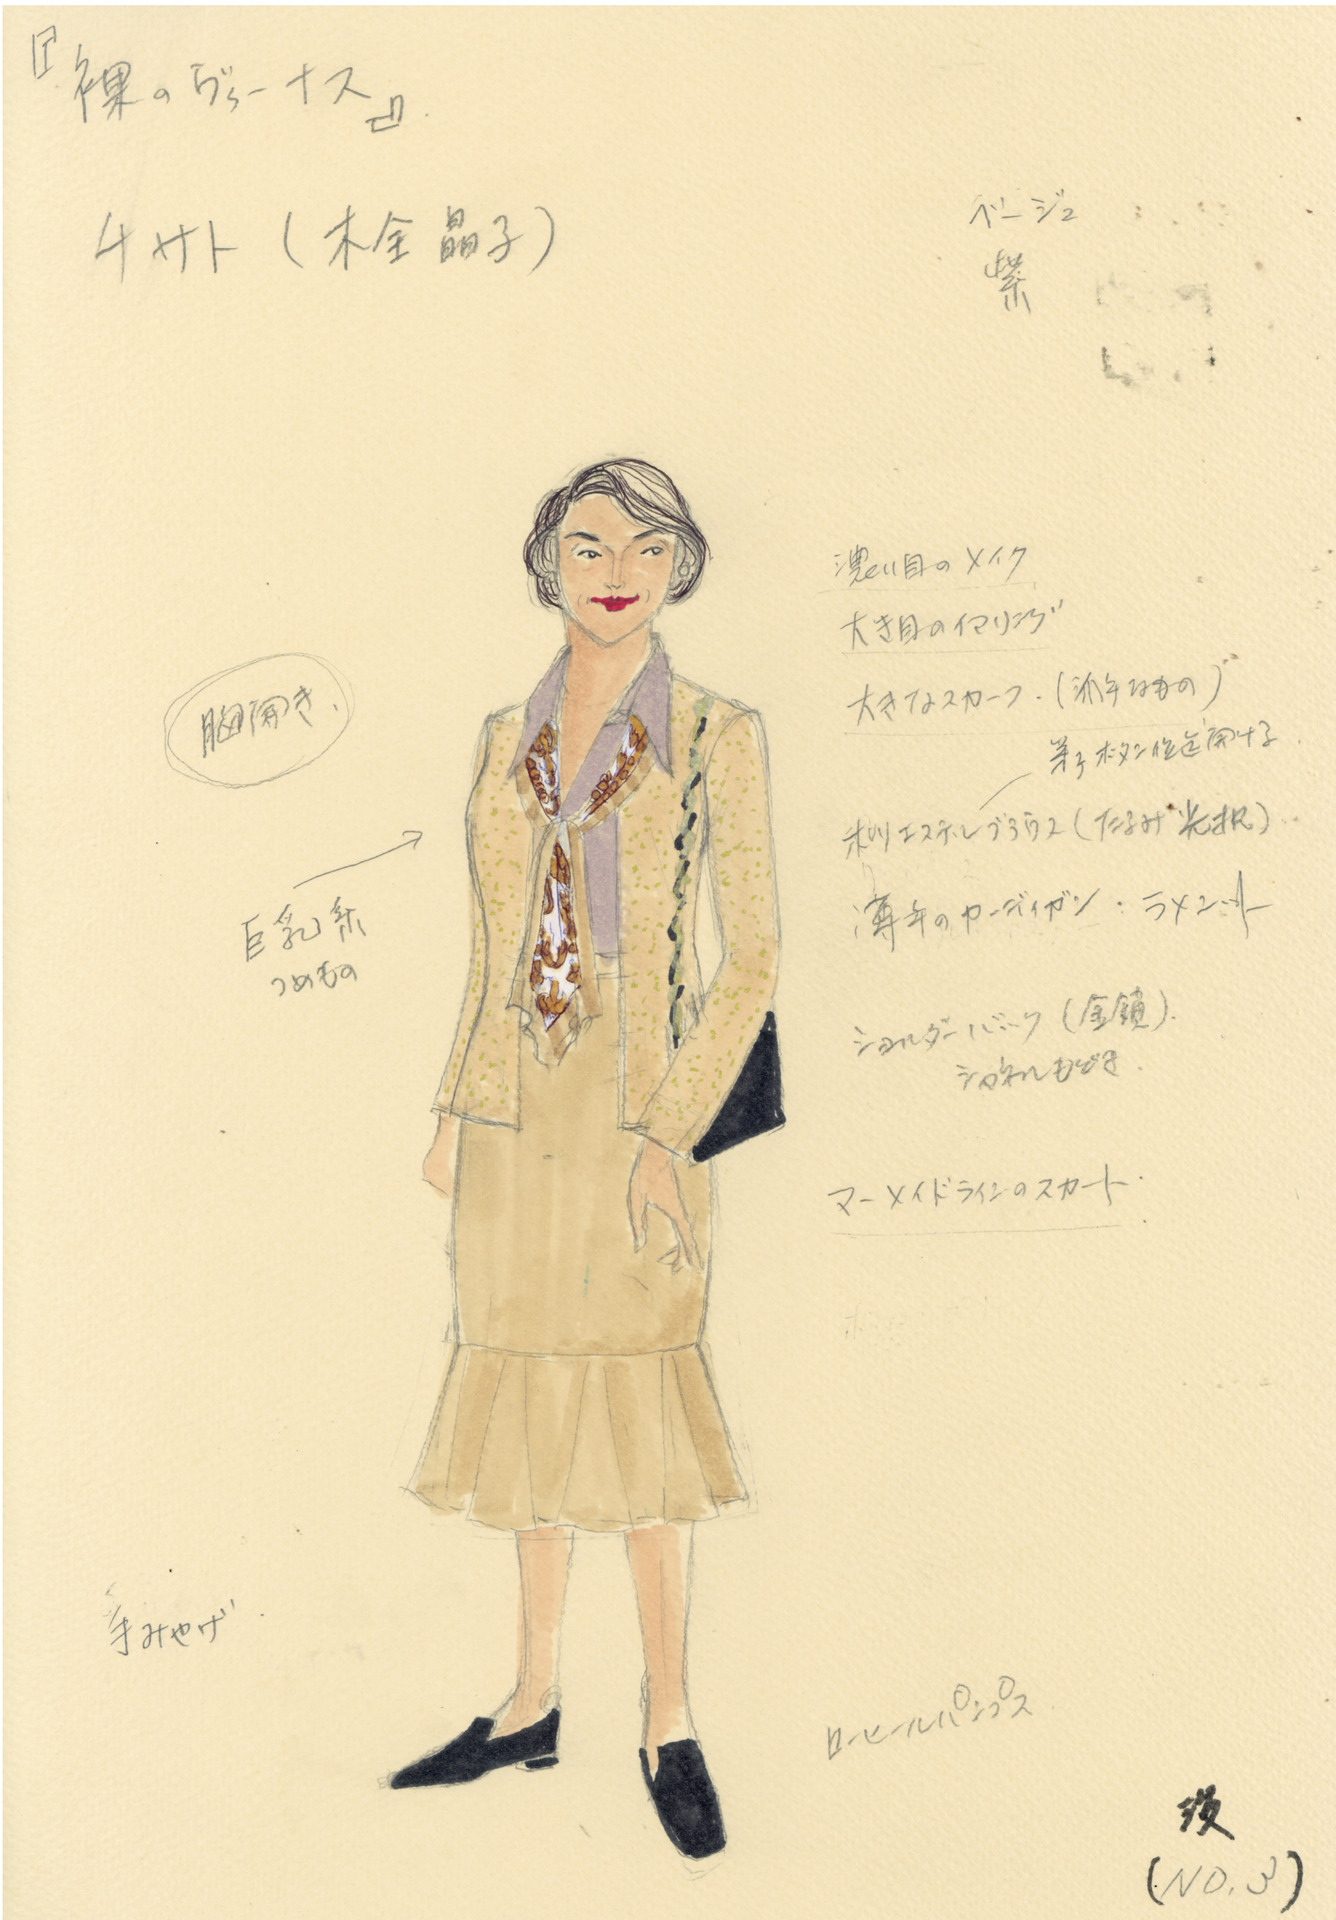 『裸のヴィーナス』
チサト(木全晶子)
ベージュ
紫
濃い目のメイク
大き目のイヤリング
大きなスカーフ.(派手なもの)
第3ボタン位迄開ける
胸開き.
ポリエステルブラウス(たるみ 光沢)
薄手のカーディガン.ラメ
巨乳系
つめもの
ショルダーバック(金鎖).
シャネルもどき.
マーメイドラインのスカート.
手みやげ.
ローヒールパンプス
(NO.3)